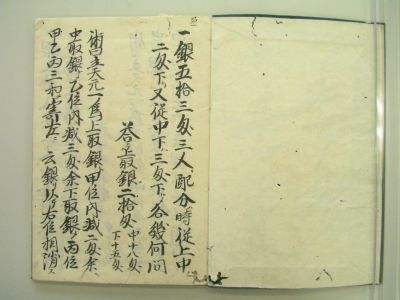 一銀五拾三匁三人配分時従上中
二匁下又従中下三匁下各幾何問
答上取銀二拾匁 中十八匁 下十五匁
術曰立天元一爲上取銀甲位内減二匁余
中取銀乙位内減三匁余下取銀丙位
甲乙丙三和寄左云銀以左位相消